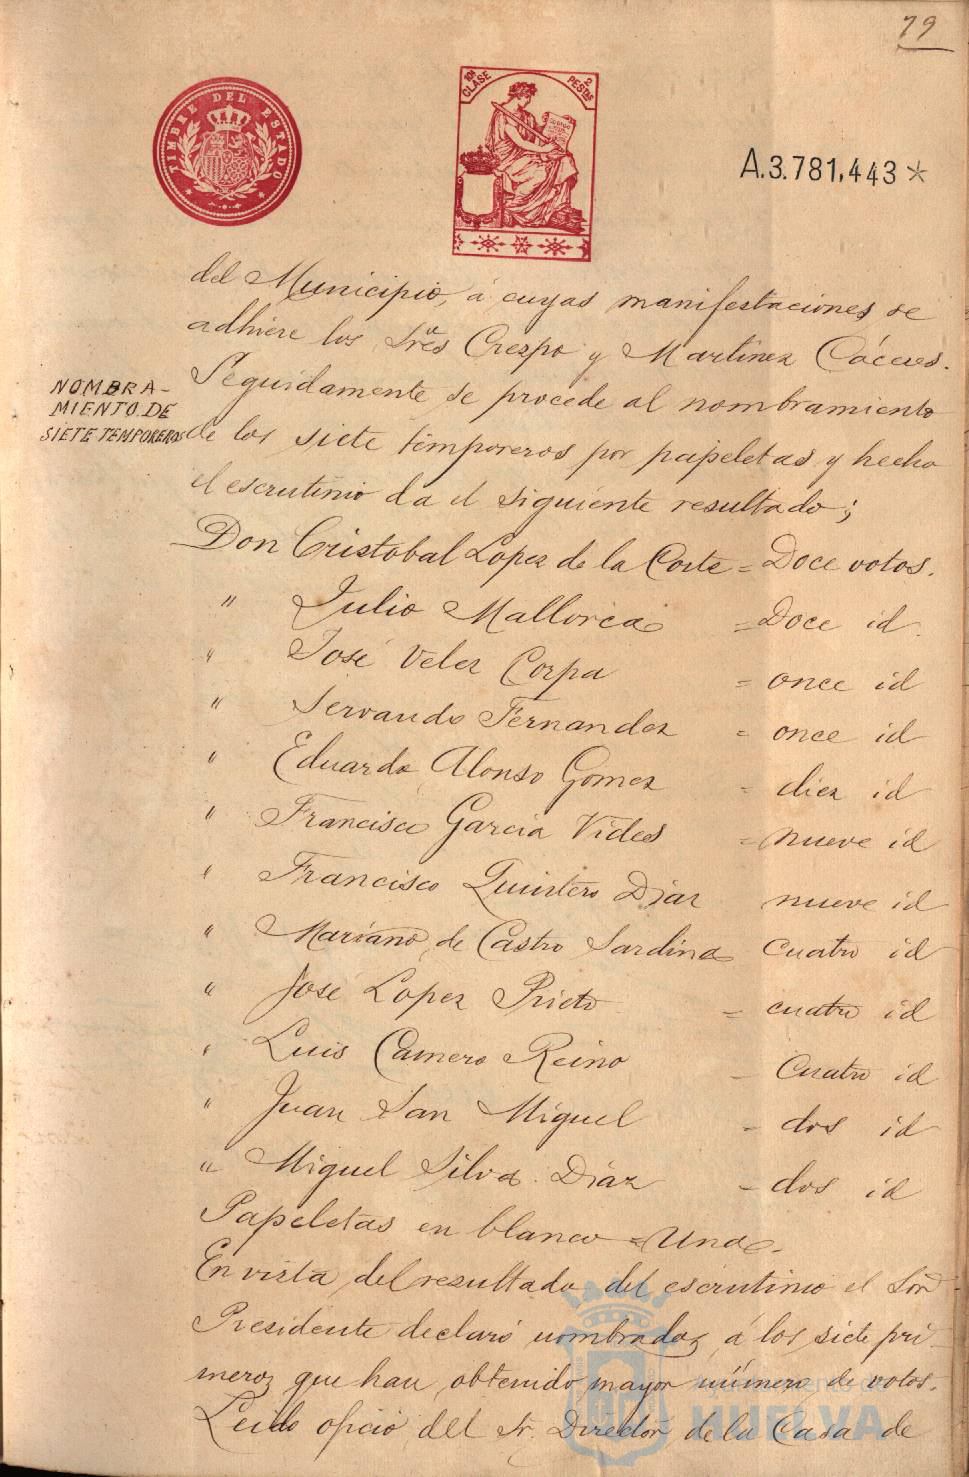 79
TIMBRE DEL ESTADO
10ª CLASE
2 PESETAS
A.3.781,443*
del Municipio, á cuyas manifestaciones se
adhiere los Sres Crespo y Martinez Cáceres.
NOMBRA-
MIENTO DE
SIETE TEMPOREROS
Seguidamente se procede al nombramiento
de los siete temporeros por papeletas y hecho
el escrutinio da el siguiente resultado;
Don Cristobal Lopez de la Corte = Doce votos.
" Julio Mallorca = Doce id.
" José Velez Corpa = once id
" Servando Fernandez = once id
" Eduardo Alonso Gomez = diez id
" Francisco Garcia Vides = nueve id
" Francisco Quintero Diaz nueve id
" Mariano de Castro Sardina cuatro id
" José Lopez Prieto = cuatro id
" Luis Camero Reino - Cuatro id
" Juan San Miguel - dos id
" Miguel Silva Diaz - dos id
Papeletas en blanco = Una.
En vista del resultado del escrutinio el Sor
Presidente declaró nombrados á los siete pri-
meros que han obtenido mayor número de votos.
Leido oficio del Sr. Director de la Casa de
Ayuntamiento de
HUELVA